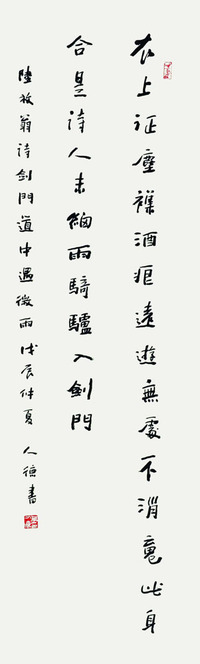 衣上征塵襍酒痕遠遊無處不消魂此身
合是詩人未細雨騎驢入劍門
陸放翁詩劍門道中遇微雨戊辰仲夏 人德書